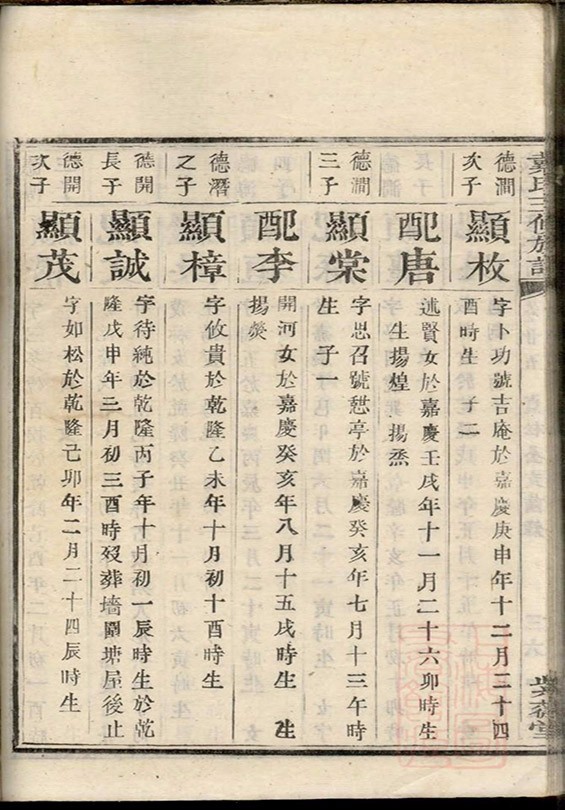 戴氏三修族譜
德澗
次子
顯枚
字卜功號吉庵於嘉慶庚申年十二月二十四
酉時生 子二
配唐
述賢女於嘉慶壬戌年十一月二十六卯時生
生揚煌 揚烝
德澗
三子
顯棠
字思召號憇亭於嘉慶癸亥年七月十三午時
生 子一
配李
開河女於嘉慶癸亥年八月十五戌時生 生
揚爕
德潛
之子
顯樟
字攸貴於乾隆乙未年十月初十酉時生
德開
長子
顯誠
字待純於乾隆丙子年十月初一辰時生於乾
隆戊申年三月初三酉時歿葬墻圍塘屋後止
德開
次子
顯茂
字如松於乾隆己卯年二月二十四辰時生